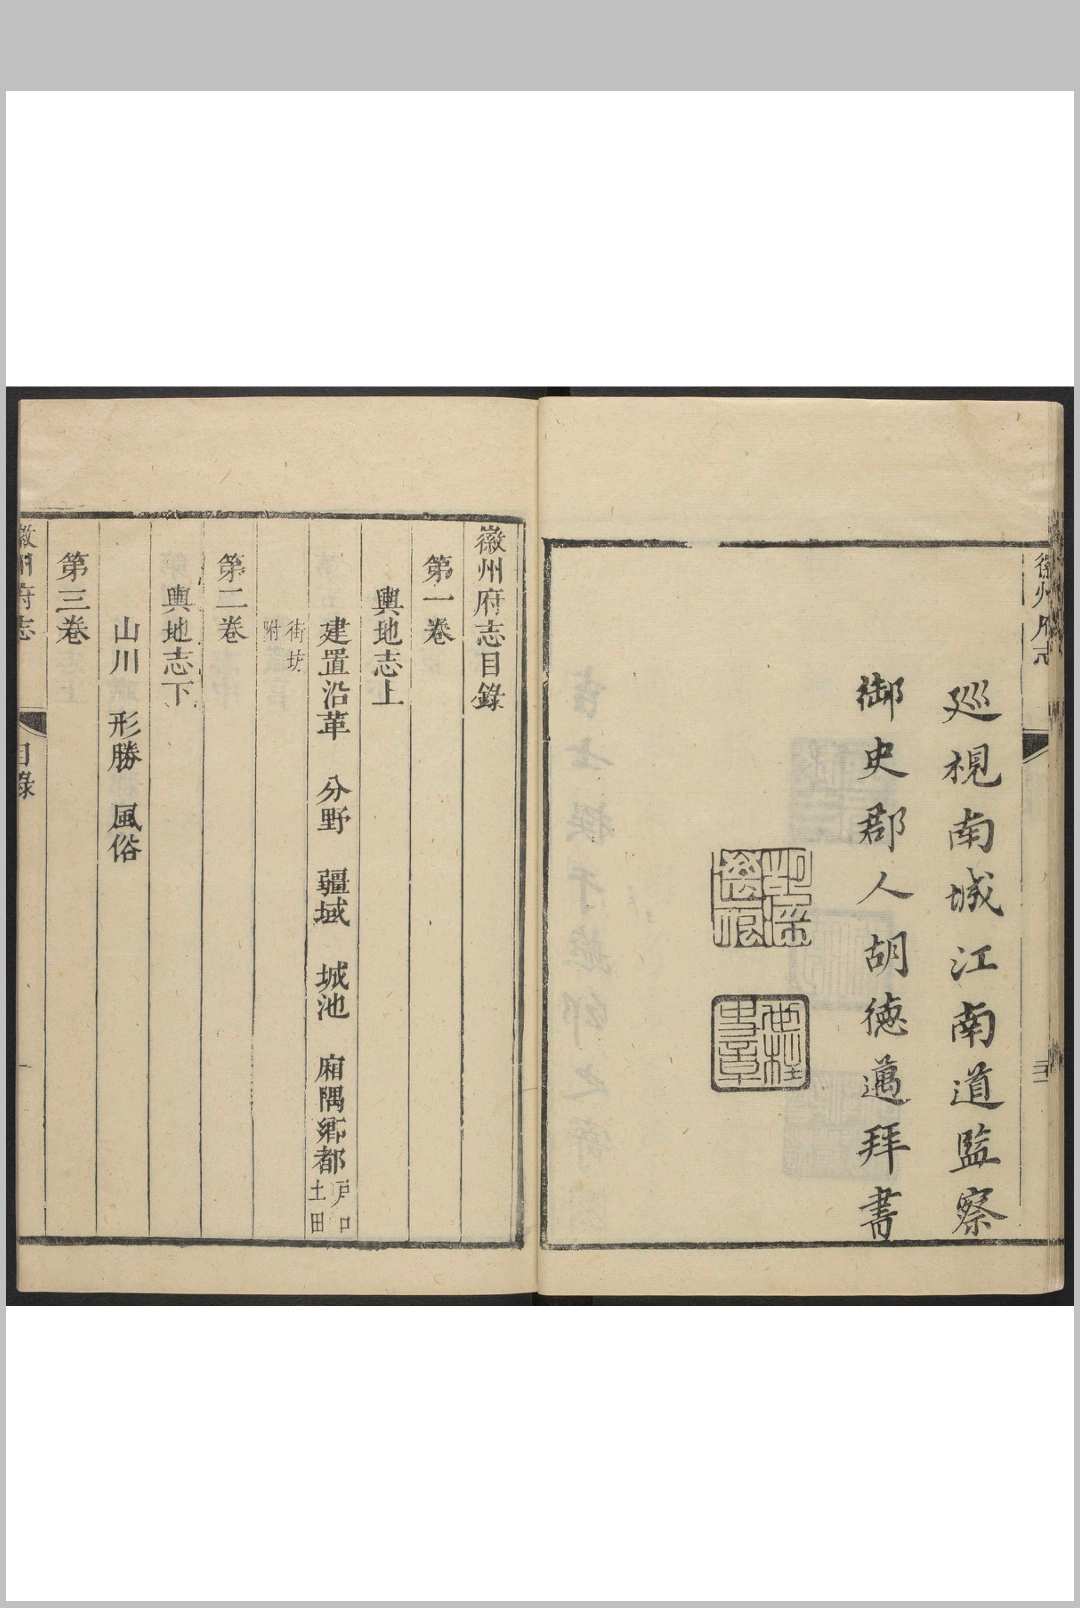 巡視南城江南道監察
御史郡人胡德邁拜書
徽州府志目錄
第一卷
輿地志上
建置沿革 分野 疆域 城池 廂隅鄉都 戶口 土田
街坊附
第二卷
輿地志下
山川 形勝 風俗
第三卷
徽州府志 目錄